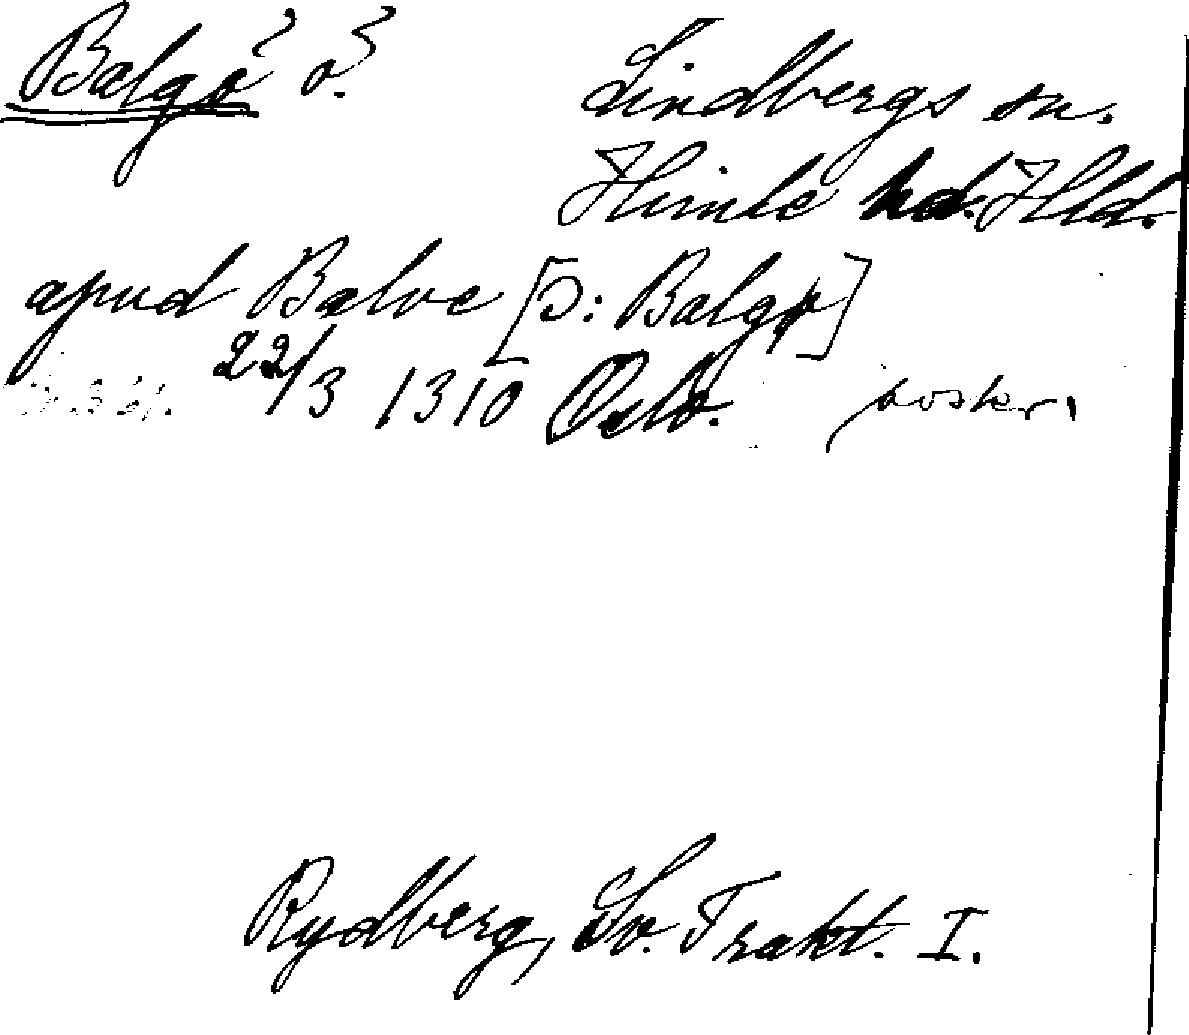 Balgö ö.
Lindbergs sn.
Himle hd. Hld.
apud Balve [ɔ: Balgø]
22/3 1310 Oslo.
Rydberg, Sv. Trakt. I.